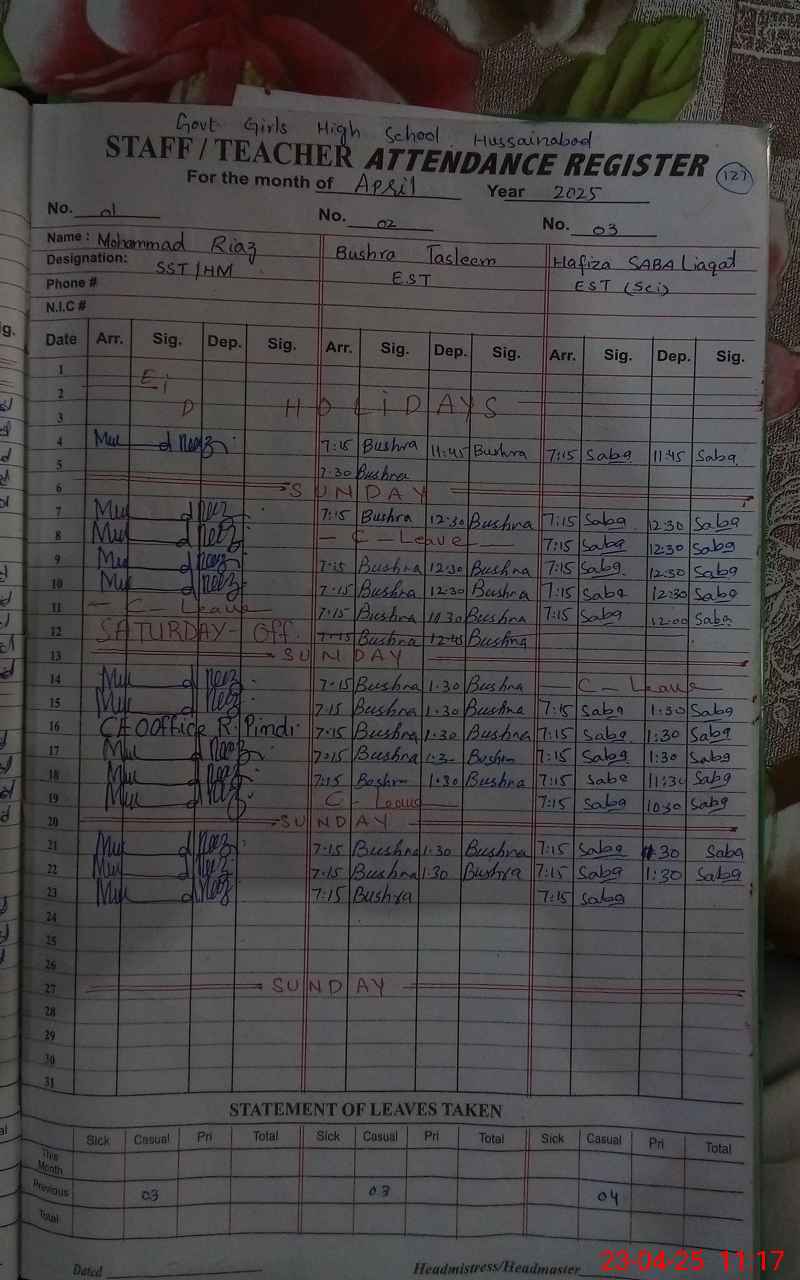 Govt Girls High School Hussainabad
STAFF / TEACHER ATTENDANCE REGISTER
127
For the month of April Year 2025
No. 01 No. 02 No. 03
Name : Mohammad Riaz Bushra Tasleem Hafiza SABA Liaqat
Designation: SST/HM EST EST (Sci)
Phone #
N.I.C #
Date Arr. Sig. Dep. Sig. Arr. Sig. Dep. Sig. Arr. Sig. Dep. Sig.
1
2 Ei
3 D HOLIDAYS
4 7:15 Bushra 11:45 Bushra 7:15 Saba 11:45 Saba
5 7:30 Bushra
6 SUNDAY
7 7:15 Bushra 12:30 Bushra 7:15 Saba 12:30 Saba
8 - C - Leave 7:15 Saba 12:30 Saba
9 7:15 Bushra 12:30 Bushra 7:15 Saba 12:30 Saba
10 7:15 Bushra 12:30 Bushra 7:15 Saba 12:30 Saba
11 - C - Leave 7:15 Bushra 10:30 Bushra 7:15 Saba 12:00 Saba
12 SATURDAY - Off. 7:15 Bushra 12:45 Bushra
13 SUNDAY
14 7:15 Bushra 1:30 Bushra - C - Leave
15 7:15 Bushra 1:30 Bushra 7:15 Saba 1:30 Saba
16 CEO Office R. Pindi 7:15 Bushra 1:30 Bushra 7:15 Saba 1:30 Saba
17 7:15 Bushra 1:30 Bushra 7:15 Saba 1:30 Saba
18 7:15 Bushra 1:30 Bushra 7:15 Saba 11:30 Saba
19 C - Leave 7:15 Saba 10:30 Saba
20 SUNDAY
21 7:15 Bushra 1:30 Bushra 7:15 Saba 1:30 Saba
22 7:15 Bushra 1:30 Bushra 7:15 Saba 1:30 Saba
23 7:15 Bushra 7:15 Saba
24
25
26
27 SUNDAY
28
29
30
31
STATEMENT OF LEAVES TAKEN
Sick Casual Pri Total Sick Casual Pri Total Sick Casual Pri Total
This Month
Previous 03 03 04
Total
Dated Headmistress/Headmaster
23-04-25 11:17